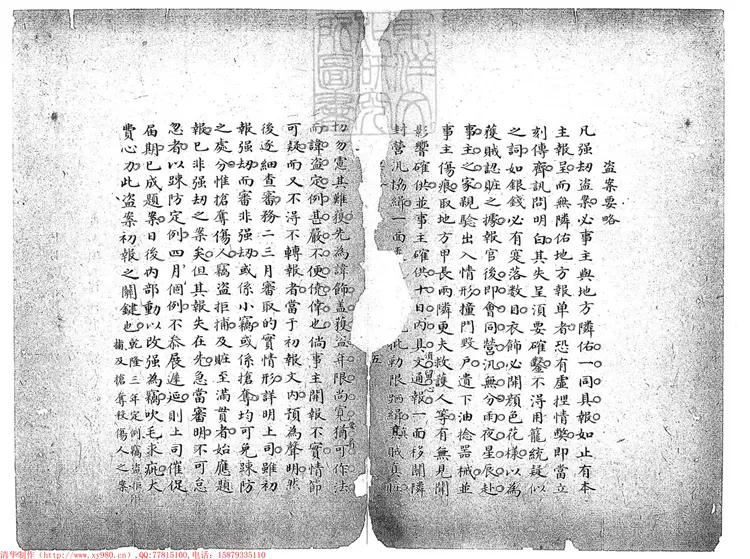 盜案要略
凡强劫盜案必事主與地方隣佑一同具報如止有本
主報呈而無隣佑地方報单者恐有虛捏情獘即當立
刻傳齊訊問明白其失呈須要確鑿不得用籠統疑似
之詞如銀錢必有塞落数目衣飾必開顔色花様以為
獲賊認賍之據報官後即會同營汛無分雨夜星辰赴
事主之家親驗出入情形撞門毀戶遺下油捻器械並
事主傷痕取地方甲長兩隣更夫救護人等有無見聞
影響確供並事主確供十日内具文通報一面移關隣
封營汛協緝一面 批勒限䟎緝真賊真賍
須留心
五
切勿憲其難獲先為諱飾盖獲盜年限尚寛猶可作法
而諱盜定例甚嚴不便僥倖也倘事主開報不實情節
可疑而又不得不轉報者當于初報文内預為聲明然
後逐細查審務二三月審取的實情形詳明上司雖初
報强劫而審非强劫或係小竊或係搶奪均可免踈防
之處分惟搶奪傷人竊盜拒捕及賍至滿貫者始應題
報已非强劫之案矣但其報失在先急當審明不可怠
忽者以踈防定例四月個例不恭展遲逥則上司催促
届期已成題案日後内部動以改强為竊吹毛求疵大
費心力此盜案初報之關鍵也乾隆三年定例竊盜拒
捕及搶奪殺傷人之案
清华制作（http://www.xy980.cn）,QQ:77815100,电话：15879335110